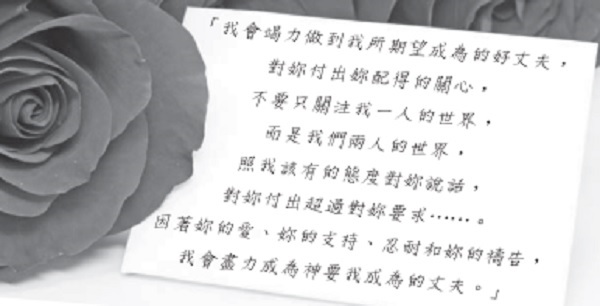 「我會竭力做到我所期望成為的好丈夫，
對妳付出妳配得的關心，
不要只關注我一人的世界，
而是我們兩人的世界，
照我該有的態度對妳說話，
對妳付出超過對妳要求……。
因著妳的愛、妳的支持、忍耐和妳的禱告，
我會盡力成為神要我成為的丈夫。」